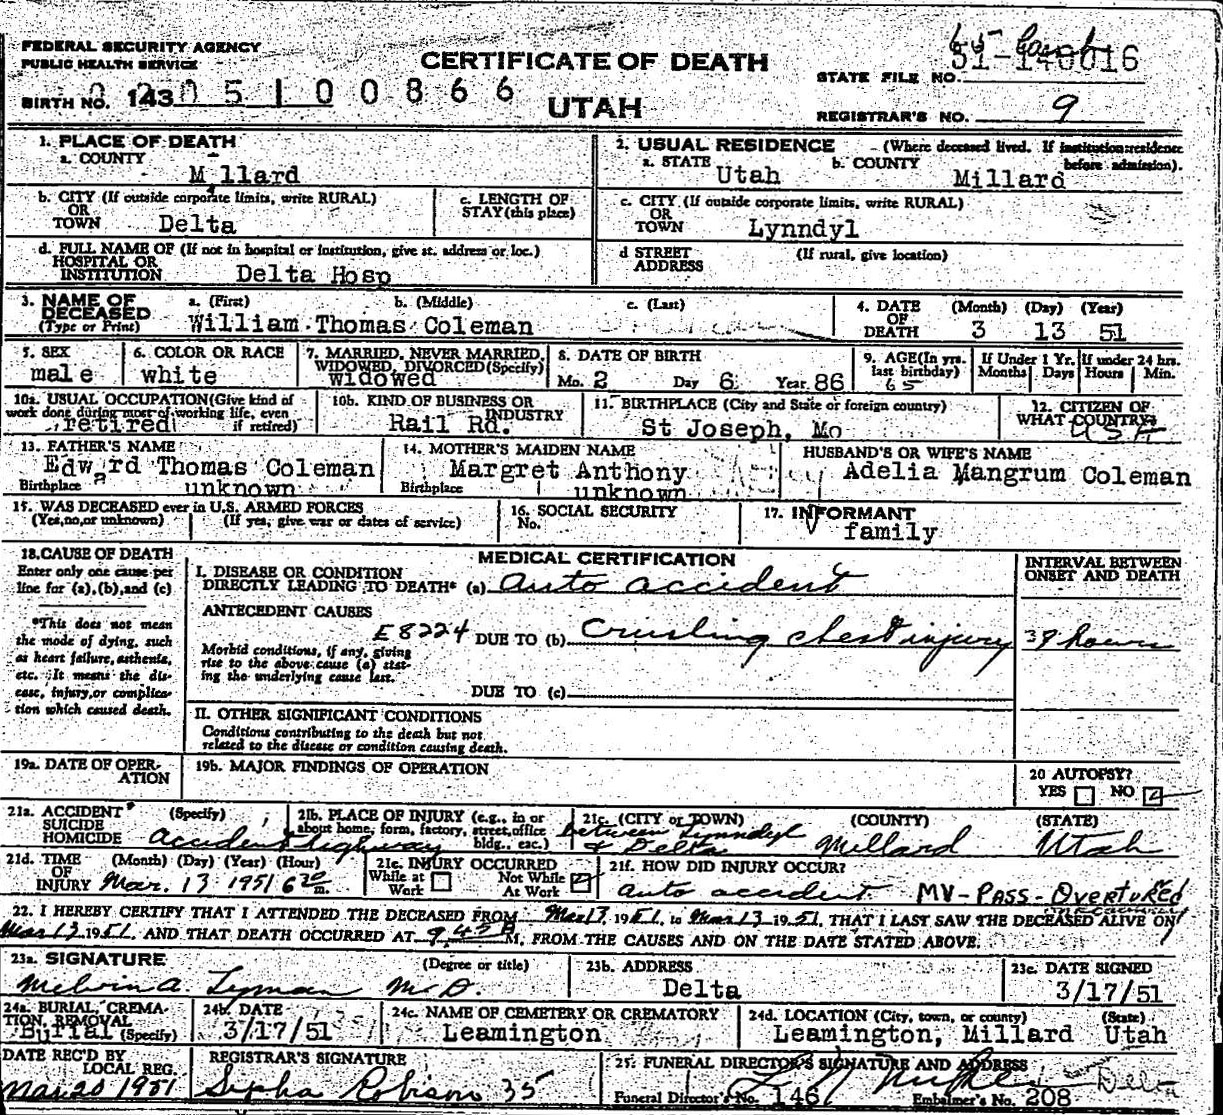 FEDERAL SECURITY AGENCY
PUBLIC HEALTH SERVICE
CERTIFICATE OF DEATH
UTAH
STATE FILE NO. 51-140016
BIRTH NO. 143 0 5 1 0 0 8 6 6
REGISTRAR'S NO. 9
1. PLACE OF DEATH
a. COUNTY
M llard
2. USUAL RESIDENCE (Where deceased lived. If institution:residence before admission).
a. STATE Utah b. COUNTY Millard
b. CITY (If outside corporate limits, write RURAL)
OR
TOWN Delta
c. LENGTH OF
STAY (this place)
c. CITY (If outside corporate limits, write RURAL)
OR
TOWN Lynndyl
d. FULL NAME OF (If not in hospital or institution, give st. address or loc.)
HOSPITAL OR
INSTITUTION Delta Hosp
d STREET (If rural, give location)
ADDRESS
3. NAME OF DECEASED
(Type or Print)
a. (First) b. (Middle) c. (Last)
William Thomas Coleman
4. DATE OF DEATH (Month) (Day) (Year)
3 13 51
5. SEX
male
6. COLOR OR RACE
white
7. MARRIED, NEVER MARRIED,
WIDOWED, DIVORCED (Specify)
widowed
8. DATE OF BIRTH
Mo. 2 Day 6 Year 86
9. AGE (In yrs. last birthday)
65
If Under 1 Yr. Months Days
If under 24 hrs. Hours Min.
10a. USUAL OCCUPATION (Give kind of
work done during most of working life, even
if retired)
retired
10b. KIND OF BUSINESS OR
INDUSTRY
Rail Rd.
11. BIRTHPLACE (City and State or foreign country)
St Joseph, Mo
12. CITIZEN OF
WHAT COUNTRY?
USA
13. FATHER'S NAME
Edward Thomas Coleman
Birthplace unknown
14. MOTHER'S MAIDEN NAME
Margret Anthony
Birthplace unknown
HUSBAND'S OR WIFE'S NAME
Adelia Mangrum Coleman
15. WAS DECEASED ever in U.S. ARMED FORCES
(Yes,no,or unknown) (If yes, give war or dates of service)
16. SOCIAL SECURITY
No.
17. INFORMANT
family
18. CAUSE OF DEATH
Enter only one cause per
line for (a), (b), and (c)
*This does not mean
the mode of dying, such
as heart failure, asthenia,
etc. It means the dis-
ease, injury, or complica-
tion which caused death.
MEDICAL CERTIFICATION
INTERVAL BETWEEN
ONSET AND DEATH
I. DISEASE OR CONDITION
DIRECTLY LEADING TO DEATH* (a) Auto accident
ANTECEDENT CAUSES
E8224 DUE TO (b) Crushing chest injury hours
Morbid conditions, if any, giving
rise to the above cause (a) stat-
ing the underlying cause last.
DUE TO (c)
II. OTHER SIGNIFICANT CONDITIONS
Conditions contributing to the death but not
related to the disease or condition causing death.
19a. DATE OF OPER-
ATION
19b. MAJOR FINDINGS OF OPERATION
20 AUTOPSY?
YES NO
21a. ACCIDENT
SUICIDE
HOMICIDE
(Specify)
Accident
21b. PLACE OF INJURY (e.g., in or
about home, form, factory, street, office
bldg., etc.)
highway
21c. (CITY or TOWN) (COUNTY) (STATE)
between Lynndyl
& Delta Millard Utah
21d. TIME OF INJURY (Month) (Day) (Year) (Hour)
Mar. 13 1951 6 30 m.
21e. INJURY OCCURRED
While at Work Not While At Work
21f. HOW DID INJURY OCCUR?
Auto accident MV-PASS-Overtured
22. I HEREBY CERTIFY THAT I ATTENDED THE DECEASED FROM Mar 13, 1951, to Mar 13 1951, THAT I LAST SAW THE DECEASED ALIVE ON
Mar 13 1951, AND THAT DEATH OCCURRED AT 9:45 P M, FROM THE CAUSES AND ON THE DATE STATED ABOVE.
23a. SIGNATURE (Degree or title)
Melvin A. Lyman M.D.
23b. ADDRESS
Delta
23c. DATE SIGNED
3/17/51
24a. BURIAL, CREMA-
TION, REMOVAL
(Specify)
Burial
24b. DATE
3/17/51
24c. NAME OF CEMETERY OR CREMATORY
Leamington
24d. LOCATION (City, town, or county) (State)
Leamington, Millard Utah
DATE REC'D BY
LOCAL REG.
Mar 20 1951
REGISTRAR'S SIGNATURE
Robison 35
25. FUNERAL DIRECTOR'S SIGNATURE AND ADDRESS
Delta
Funeral Director's No. 146 Embalmer's No. 208